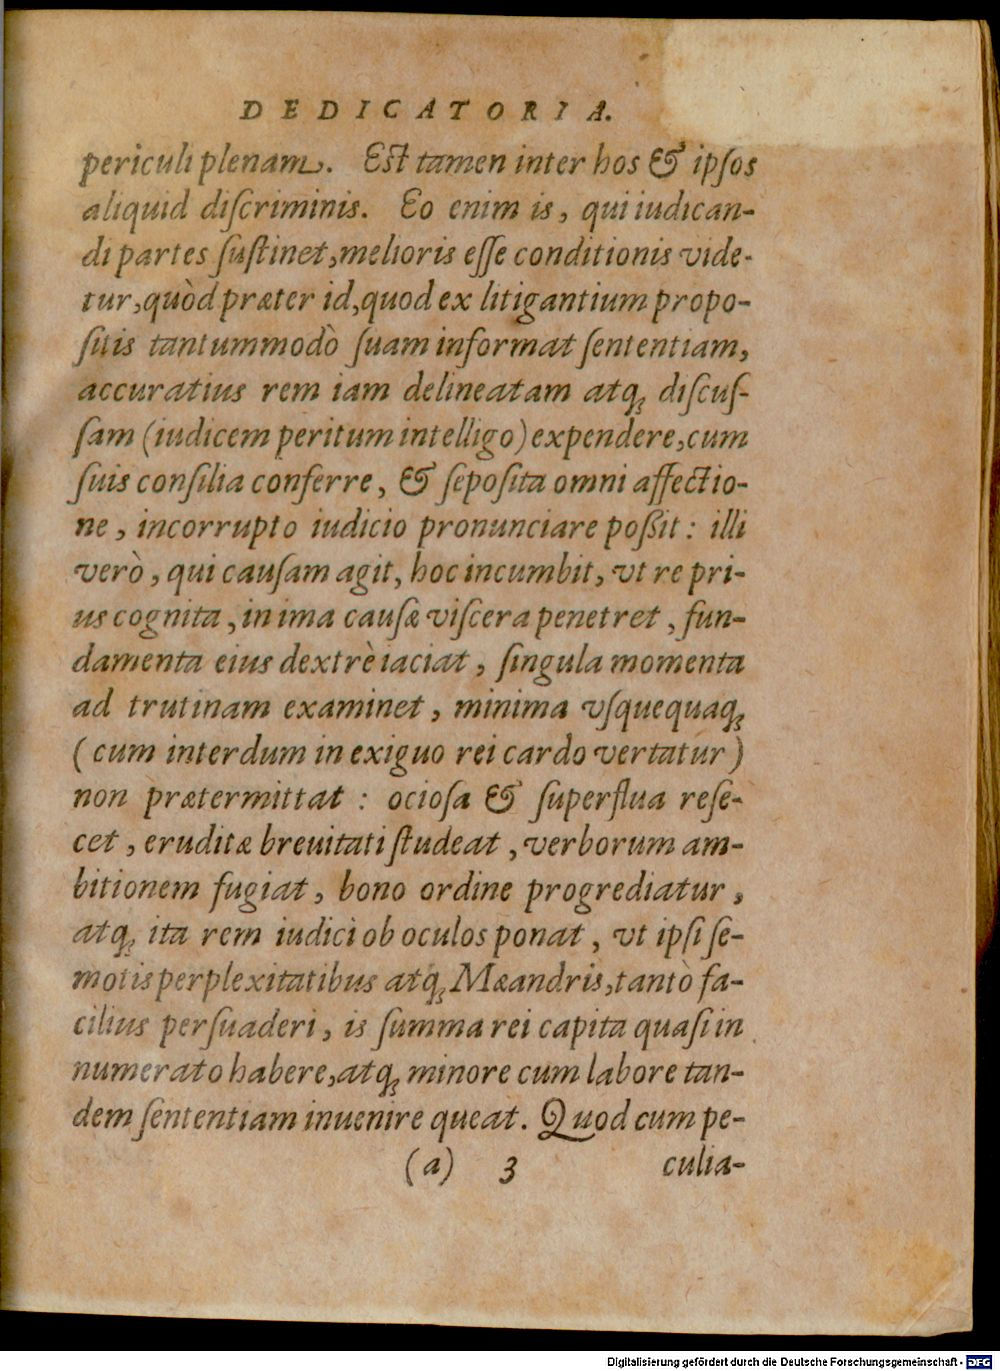 DEDICATORIA.
periculi plenam. Est tamen inter hos & ipſos
aliquid diſcriminis. Eo enim is, qui iudican-
di partes ſuſtinet, melioris eſſe conditionis vide-
tur, quòd præter id, quod ex litigantium propo-
ſitis tantummodò ſuam informat ſententiam,
accuratius rem iam delineatam atq; diſcuſ-
ſam (iudicem peritum intelligo) expendere, cum
ſuis conſilia conferre, & ſepoſita omni affectio-
ne, incorrupto iudicio pronunciare poßit: illi
verò, qui cauſam agit, hoc incumbit, vt re pri-
us cognita, in ima cauſæ viſcera penetret, fun-
damenta eius dextrè iaciat, ſingula momenta
ad trutinam examinet, minima vſquequaq;
(cum interdum in exiguo rei cardo vertatur)
non prætermittat: ocioſa & ſuperflua reſe-
cet, eruditæ breuitati ſtudeat, verborum am-
bitionem fugiat, bono ordine progrediatur,
atq; ita rem iudici ob oculos ponat, vt ipſi ſe-
motis perplexitatibus atq; Mæandris, tantò fa-
cilius perſuaderi, is ſumma rei capita quaſi in
numerato habere, atq; minore cum labore tan-
dem ſententiam inuenire queat. Quod cum pe-
(a) 3 culia-
Digitalisierung gefördert durch die Deutsche Forschungsgemeinschaft - DFG